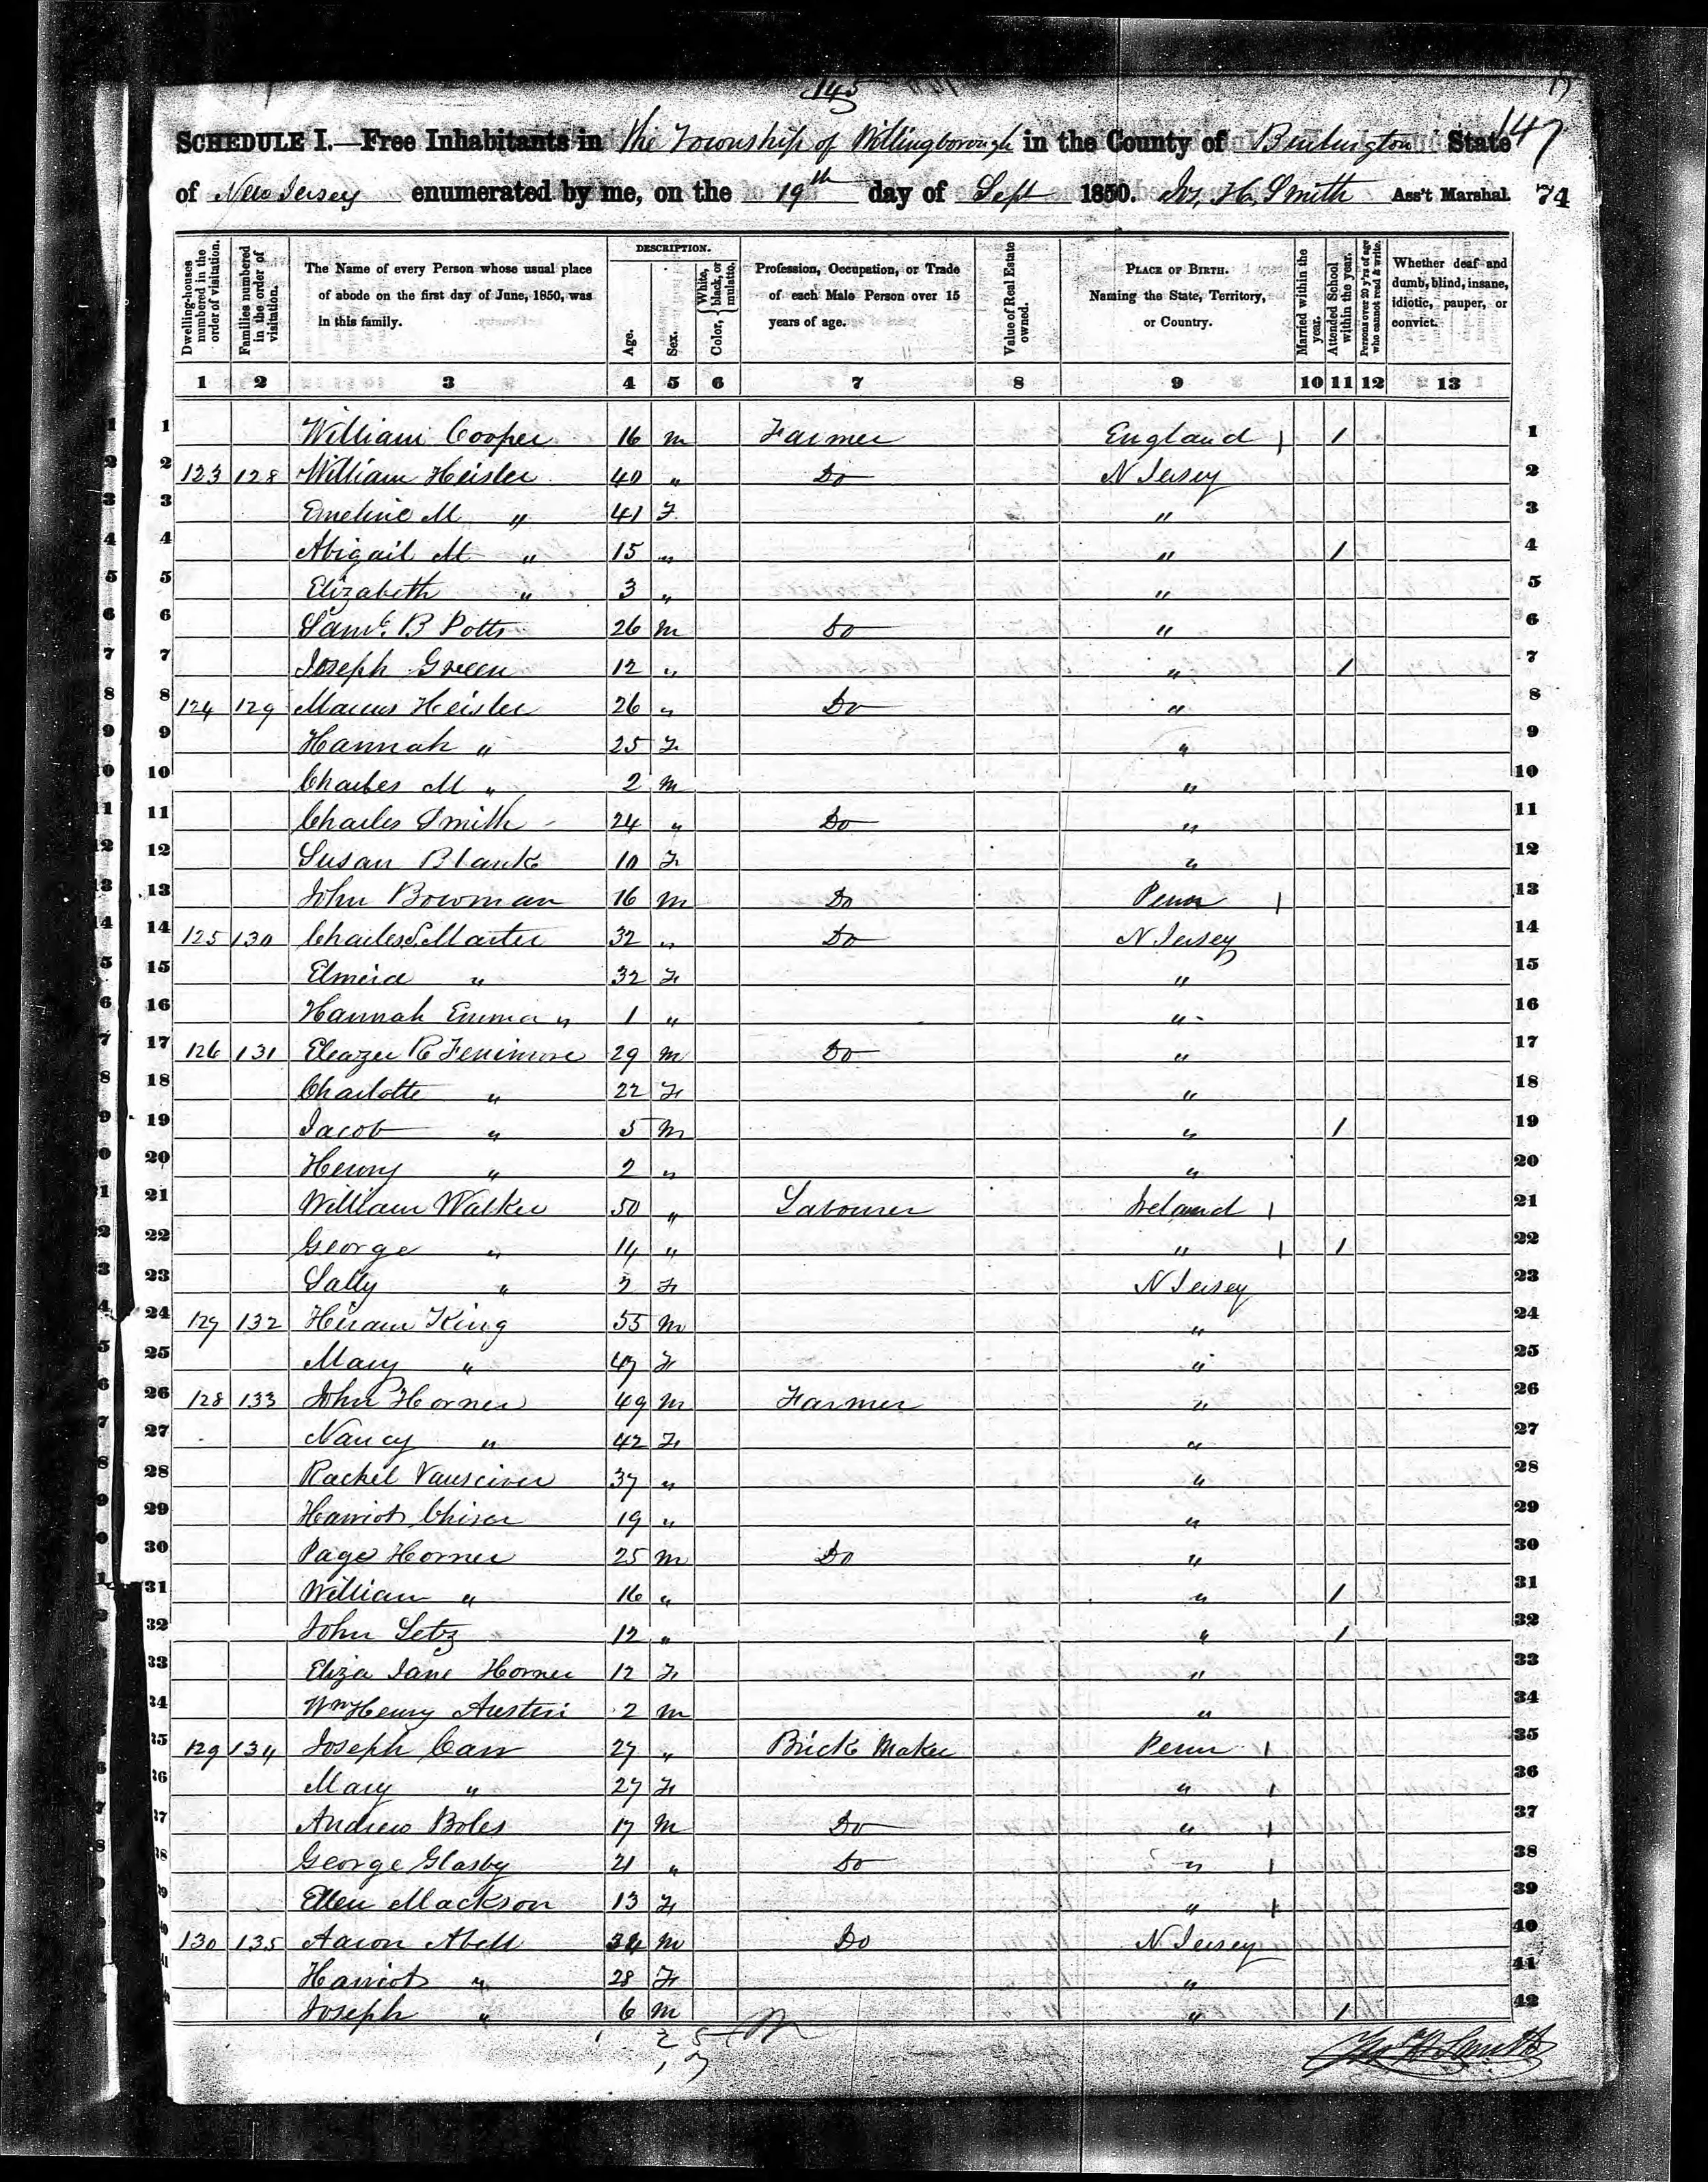 145
147
SCHEDULE I.—Free Inhabitants in the Township of Willingborough in the County of Burlington State
of New Jersey enumerated by me, on the 19th day of Sept 1850. Jos. H. Smith Ass't Marshal. 74
Dwelling-houses numbered in the order of visitation. Families numbered in the order of visitation. The Name of every Person whose usual place of abode on the first day of June, 1850, was in this family. DESCRIPTION. Age. Sex. Color, { White, black, or mulatto. Profession, Occupation, or Trade of each Male Person over 15 years of age. Value of Real Estate owned. PLACE OF BIRTH. Naming the State, Territory, or Country. Married within the year. Attended School within the year. Persons over 20 y'rs of age who cannot read & write. Whether deaf and dumb, blind, insane, idiotic, pauper, or convict.
1 2 3 4 5 6 7 8 9 10 11 12 13
1 William Cooper 16 m Farmer England 1 1
2 123 128 William Heisler 40 " Do N Jersey 2
3 Emeline M " 41 F " 3
4 Abigail M " 15 " " 1 4
5 Elizabeth " 3 " " 5
6 Saml. B Potts 26 m Do " 6
7 Joseph Green 12 " " 1 7
8 124 129 Marcus Heisler 26 " Do " 8
9 Hannah " 25 F " 9
10 Charles M " 2 m " 10
11 Charles Smith 24 " Do " 11
12 Susan Blank 10 F " 12
13 John Bowman 16 m Do Penn 13
14 125 130 Charles S. Marter 32 " Do N Jersey 14
15 Elmira " 32 F " 15
16 Hannah Emma " 1 " " 16
17 126 131 Eleazer R Fenimore 29 m Do " 17
18 Charlotte " 22 F " 18
19 Jacob " 5 m " 1 19
20 Henry " 2 " " 20
21 William Walker 50 " Labourer Ireland 21
22 George " 14 " " 1 22
23 Sally " F N Jersey 23
24 127 132 Hiram King 55 m " 24
25 Mary " 47 F " 25
26 128 133 John Horner 49 m Farmer " 26
27 Nancy " 42 F " 27
28 Rachel Vansciver 37 " " 28
29 Harriot 19 " " 29
30 Page Horner 25 m Do " 30
31 William " 16 " " 1 31
32 John Letz 12 " " 1 32
33 Eliza Jane Horner 12 F " 33
34 Wm Henry Austin 2 m " 34
35 129 134 Joseph Carr 27 " Brick Maker Penn 35
36 Mary " 27 F " 36
37 Andrew Boles 17 m Do " 37
38 George Glasby 21 " Do " 38
39 Ellen Mackson 13 F " 39
40 130 135 Aaron Abell 34 m Do N Jersey 40
41 Harriot " 28 F " 41
42 Joseph " 6 m " 1 42